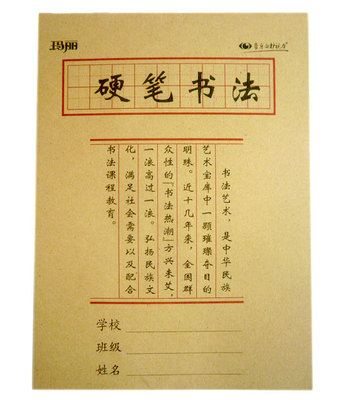 玛丽
硬笔书法
书法艺术，是中华民族
艺术宝库中一颗璀璨夺目的
明珠。近十几年来，全国群
众性的『书法热潮』方兴未艾，
一浪高过一浪。弘扬民族文
化，满足社会需要以及配合
书法课程教育。
学校
班级
姓名